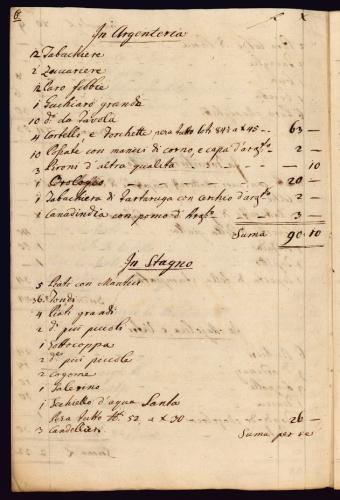 6
In Argenteria
12 Tabachiere
2 Zuccariere
12 Paro fibbie
1 Guchiaro grande
10 d.i da Tavola
4 Cortello e Forchette pera tutto lott 84½ a x 45 63 —
10 Cospate con manici di corno, e capa d'arg.to 2 —
3 Pironi d'altra qualità — 10
1 Orologio 20 —
1 Tabachiera di Tartaruga con cerchio d'arg.to 2 —
2 Canadindia con pomo d'Arg.to 3 —
Suma 90 10
In Stagno
5 Piati con Mantici
36 Tondi
4 Piati grandi
2 d.i più piccoli
1 Sottocoppa
2 d.e più piccole
2 Cogome
1 Salerino
1 Sechiello d'aqua Santa
Pera tutto lb. 52 a x 30 26 —
3 Candellieri
Suma per se